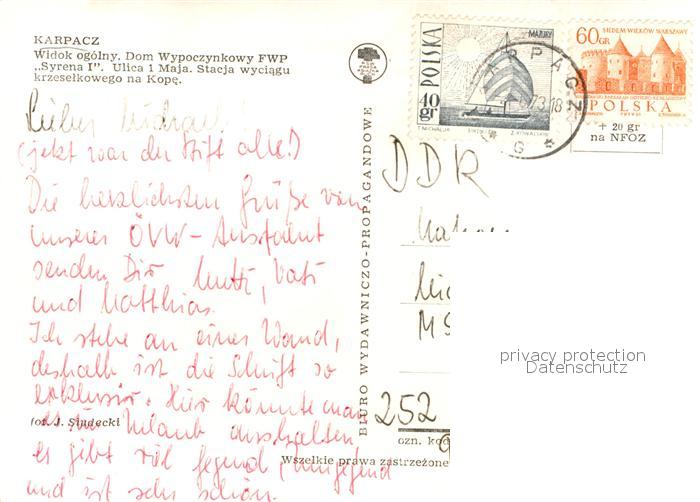 KARPACZ
Widok ogólny. Dom Wypoczynkowy FWP
„Syrena I". Ulica 1 Maja. Stacja wyciągu
krzesełkowego na Kopę.
Lieber Michael!
(jetzt war der Stift alle!)
Die herzlichsten Grüße von
unserer ÖVW-
senden Dir Mutti, Vati
und Matthias.
Ich stehe an einer Wand,
deshalb ist die Schrift so
exklusiv. Hier könnte man
Urlaub aushalten
es gibt viel Gegend (Umgegend
und ist sehr schön.
fot. J. Siudecki
BIURO WYDAWNICZO-PROPAGANDOWE
POLSKA
MAZURY
40 gr
KARPACZ
73-18
SIEDEM WIEKÓW WARSZAWY
60 GR
POLSKA
+ 20 gr
na NFOZ
DDR
252
ozn. kod
Wszelkie prawa zastrzeżone
privacy protection
Datenschutz